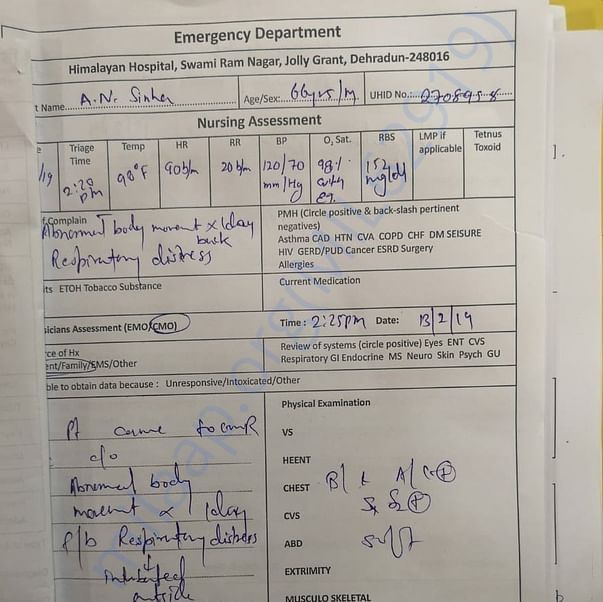 Emergency Department
Himalayan Hospital, Swami Ram Nagar, Jolly Grant, Dehradun-248016
t Name A.N. Sinha Age/Sex: 66yrs/M UHID No.: 2708958
Nursing Assessment
e Triage Time Temp HR RR BP O, Sat. RBS LMP if applicable Tetnus Toxoid
/19 2:20 pm 98°F 90b/m 20b/m 120/70 mm/Hg 98% 152 mg/dl
f Complain
Abnormal body movment x 1day back
Respiratory distress
PMH (Circle positive & back-slash pertinent
negatives)
Asthma CAD HTN CVA COPD CHF DM SEISURE
HIV GERD/PUD Cancer ESRD Surgery
Allergies
its ETOH Tobacco Substance
Current Medication
sicians Assessment (EMO/CMO) Time: 2:25pm Date: 13/2/19
rce of Hx
ent/Family/EMS/Other
Review of systems (circle positive) Eyes ENT CVS
Respiratory GI Endocrine MS Neuro Skin Psych GU
ble to obtain data because : Unresponsive/Intoxicated/Other
Pt came to EMR
c/o
Abnormal body
movement x 1day
f/b Respiratory distress
↓
Intubated
outside
Physical Examination
VS
HEENT
CHEST B/L A/E +
CVS S1 S2 +
ABD soft
EXTRIMITY
MUSCULO SKELETAL
milaap.org